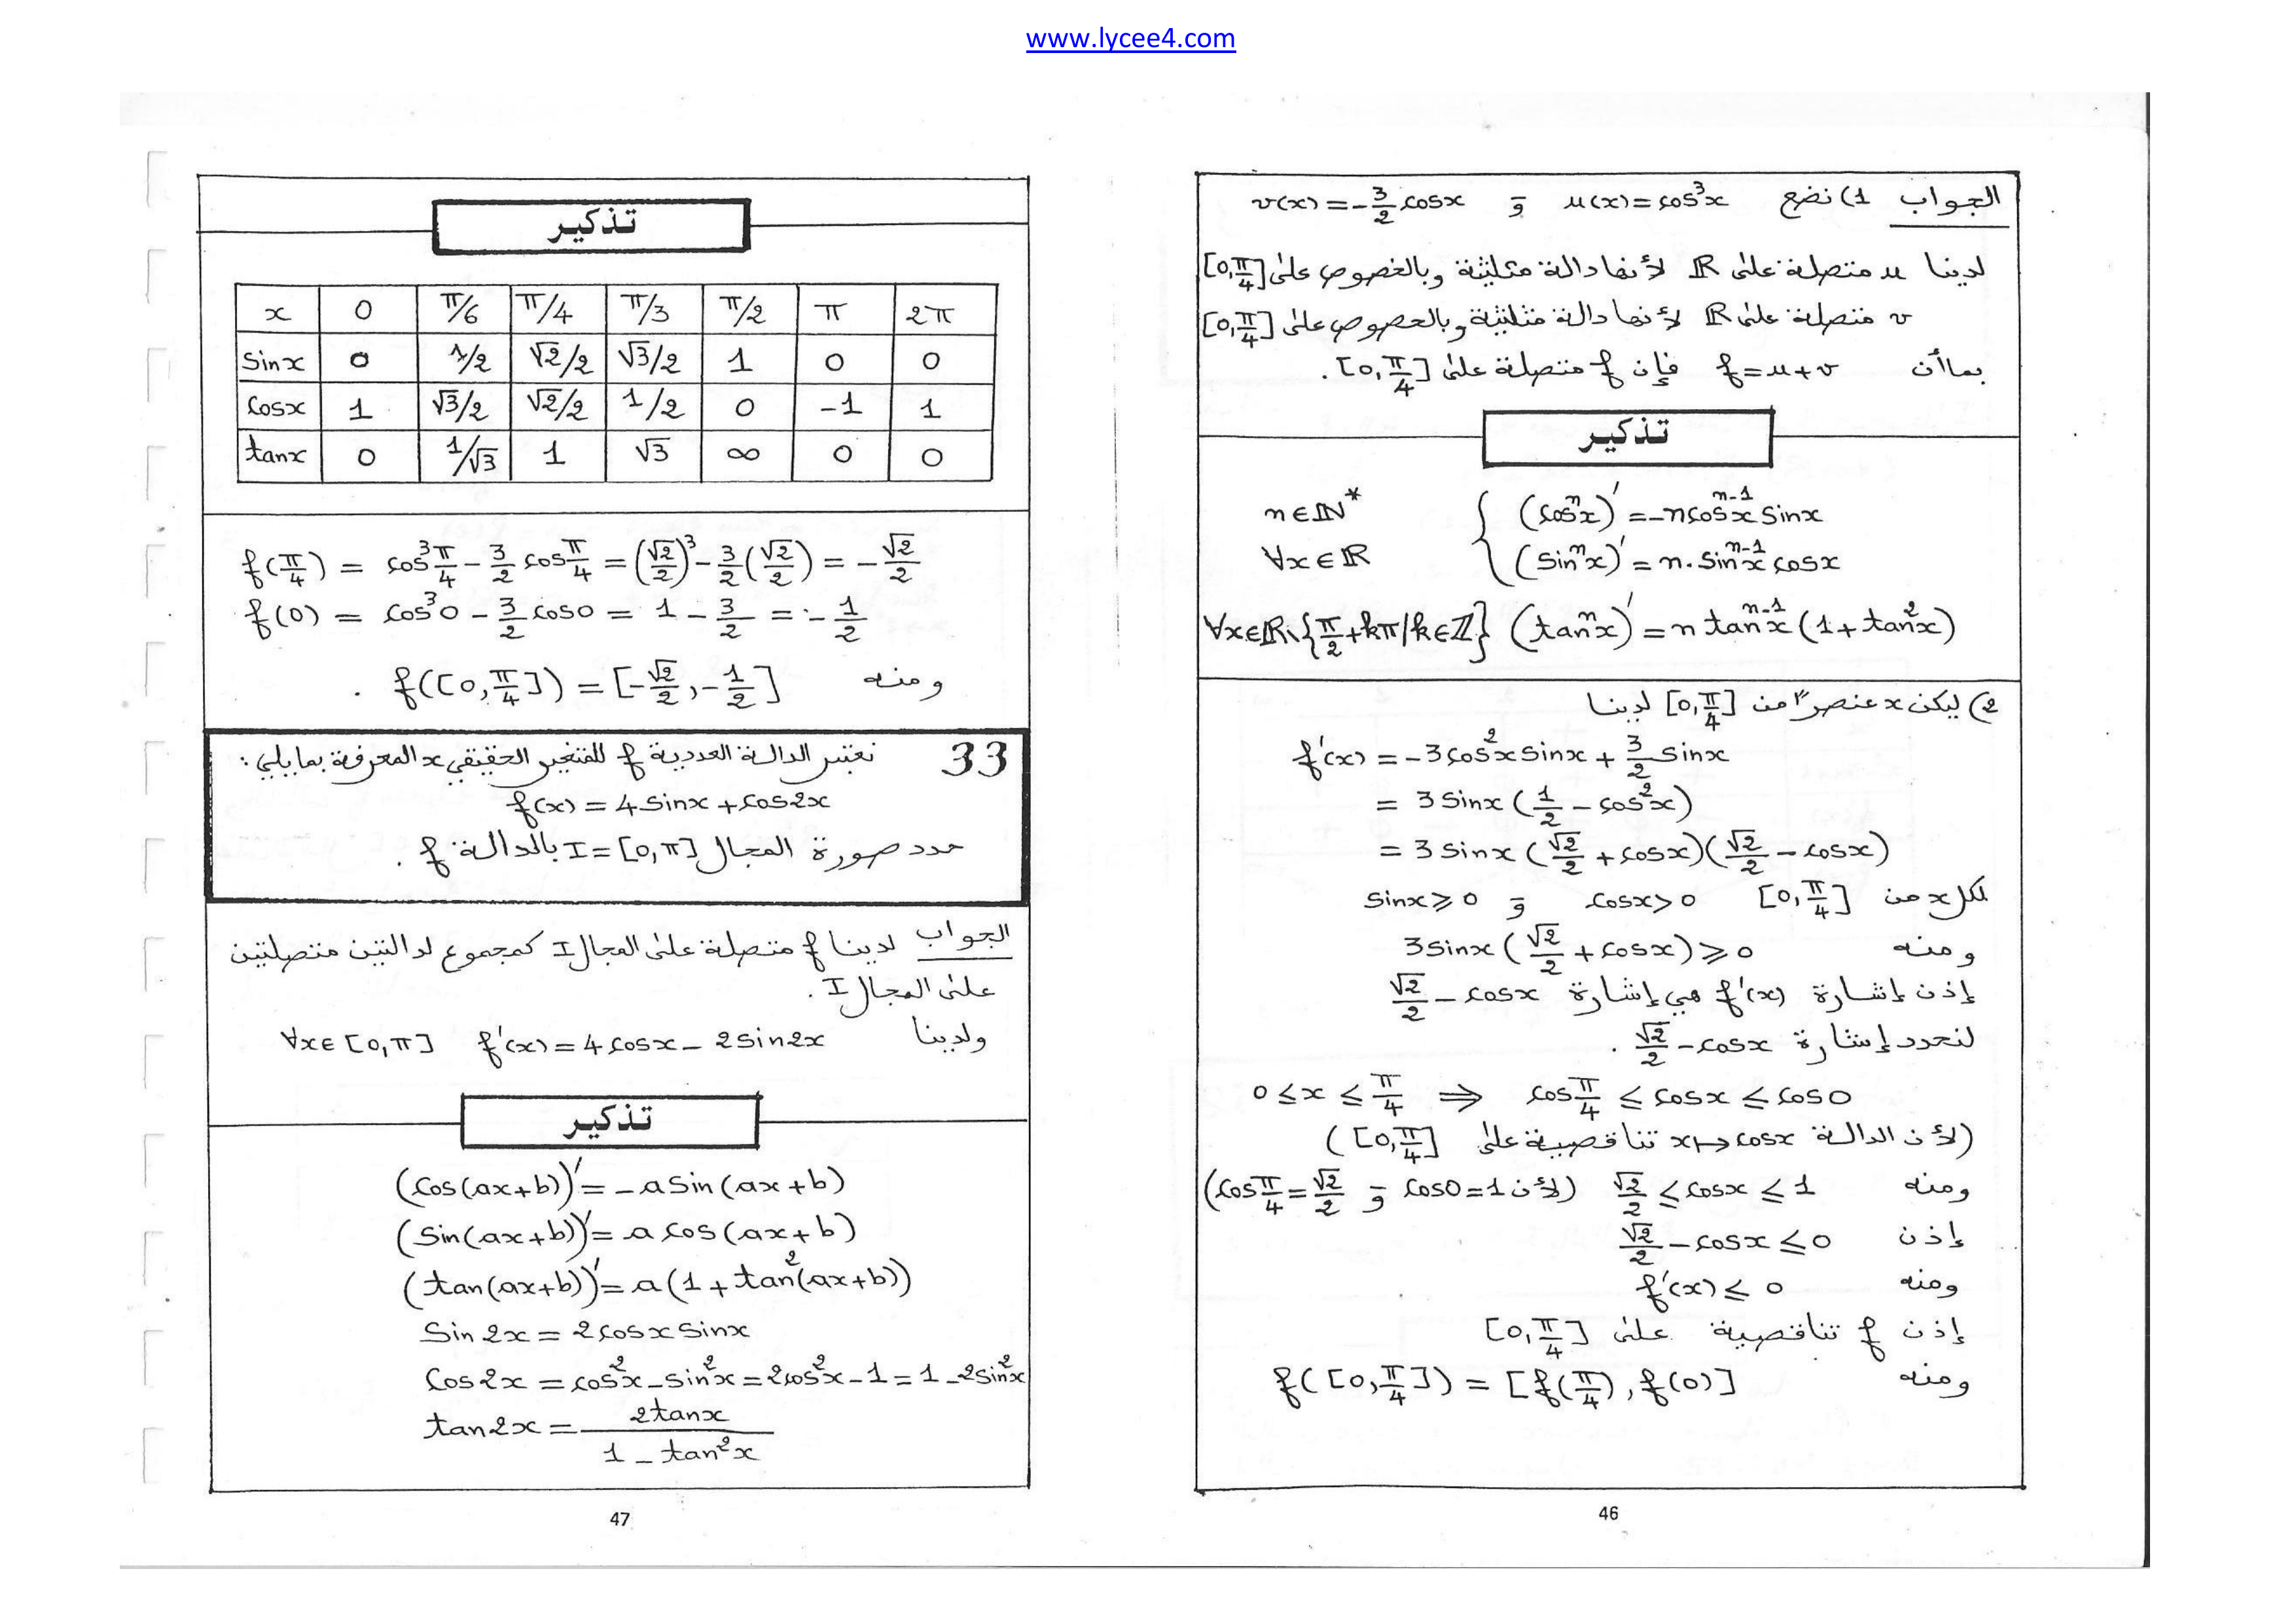 www.lycee4.com
الجواب 1) نضع u(x)=cos³x و v(x)=-3/2 cosx
لدينا u متصلة على ℝ لأنها دالة مثلثية وبالخصوص على [0,π/4]
v متصلة على ℝ لأنها دالة مثلثية وبالخصوص على [0,π/4]
بماأن f=u+v فإن f متصلة على [0,π/4].
تذكير
n∈ℕ* { (cosⁿx)' = -n cosⁿ⁻¹x sinx
∀x∈ℝ (sinⁿx)' = n. sinⁿ⁻¹x cosx
∀x∈ℝ\{π/2+kπ/k∈ℤ} (tanⁿx)' = n tanⁿ⁻¹x (1+tan²x)
2) ليكن x عنصرا من [0,π/4] لدينا
f'(x) = -3cos²x sinx + 3/2 sinx
= 3 sinx (1/2 - cos²x)
= 3 sinx (√2/2 + cosx)(√2/2 - cosx)
لكل x من [0,π/4] cosx>0 و sinx⩾0
ومنه 3sinx(√2/2 + cosx)⩾0
إذن إشارة f'(x) هي إشارة √2/2 - cosx
لنحدد إشارة √2/2 - cosx .
0⩽x⩽π/4 ⟹ cosπ/4 ⩽ cosx ⩽ cos0
(لأن الدالة x↦cosx تناقصية على [0,π/4])
ومنه √2/2 ⩽ cosx ⩽ 1 (لأن cos0=1 و cosπ/4=√2/2)
إذن √2/2 - cosx ⩽ 0
ومنه f'(x) ⩽ 0
إذن f تناقصية على [0,π/4]
ومنه f([0,π/4]) = [f(π/4), f(0)]
46
تذكير
x 0 π/6 π/4 π/3 π/2 π 2π
sinx 0 1/2 √2/2 √3/2 1 0 0
cosx 1 √3/2 √2/2 1/2 0 -1 1
tanx 0 1/√3 1 √3 ∞ 0 0
f(π/4) = cos³π/4 - 3/2 cosπ/4 = (√2/2)³ - 3/2(√2/2) = -√2/2
f(0) = cos³0 - 3/2 cos0 = 1 - 3/2 = -1/2
ومنه f([0,π/4]) = [-√2/2, -1/2] .
33 نعتبر الدالة العددية f للمتغير الحقيقي x المعرفة بمايلي :
f(x) = 4sinx + cos2x
حدد صورة المجال I=[0,π] بالدالة f .
الجواب لدينا f متصلة على المجال I كمجموع لدالتين متصلتين
على المجال I .
ولدينا ∀x∈[0,π] f'(x) = 4cosx - 2sin2x
تذكير
(cos(ax+b))' = -a sin(ax+b)
(sin(ax+b))' = a cos(ax+b)
(tan(ax+b))' = a(1+tan²(ax+b))
sin2x = 2cosx sinx
cos2x = cos²x - sin²x = 2cos²x - 1 = 1 - 2sin²x
tan2x = 2tanx / 1 - tan²x
47